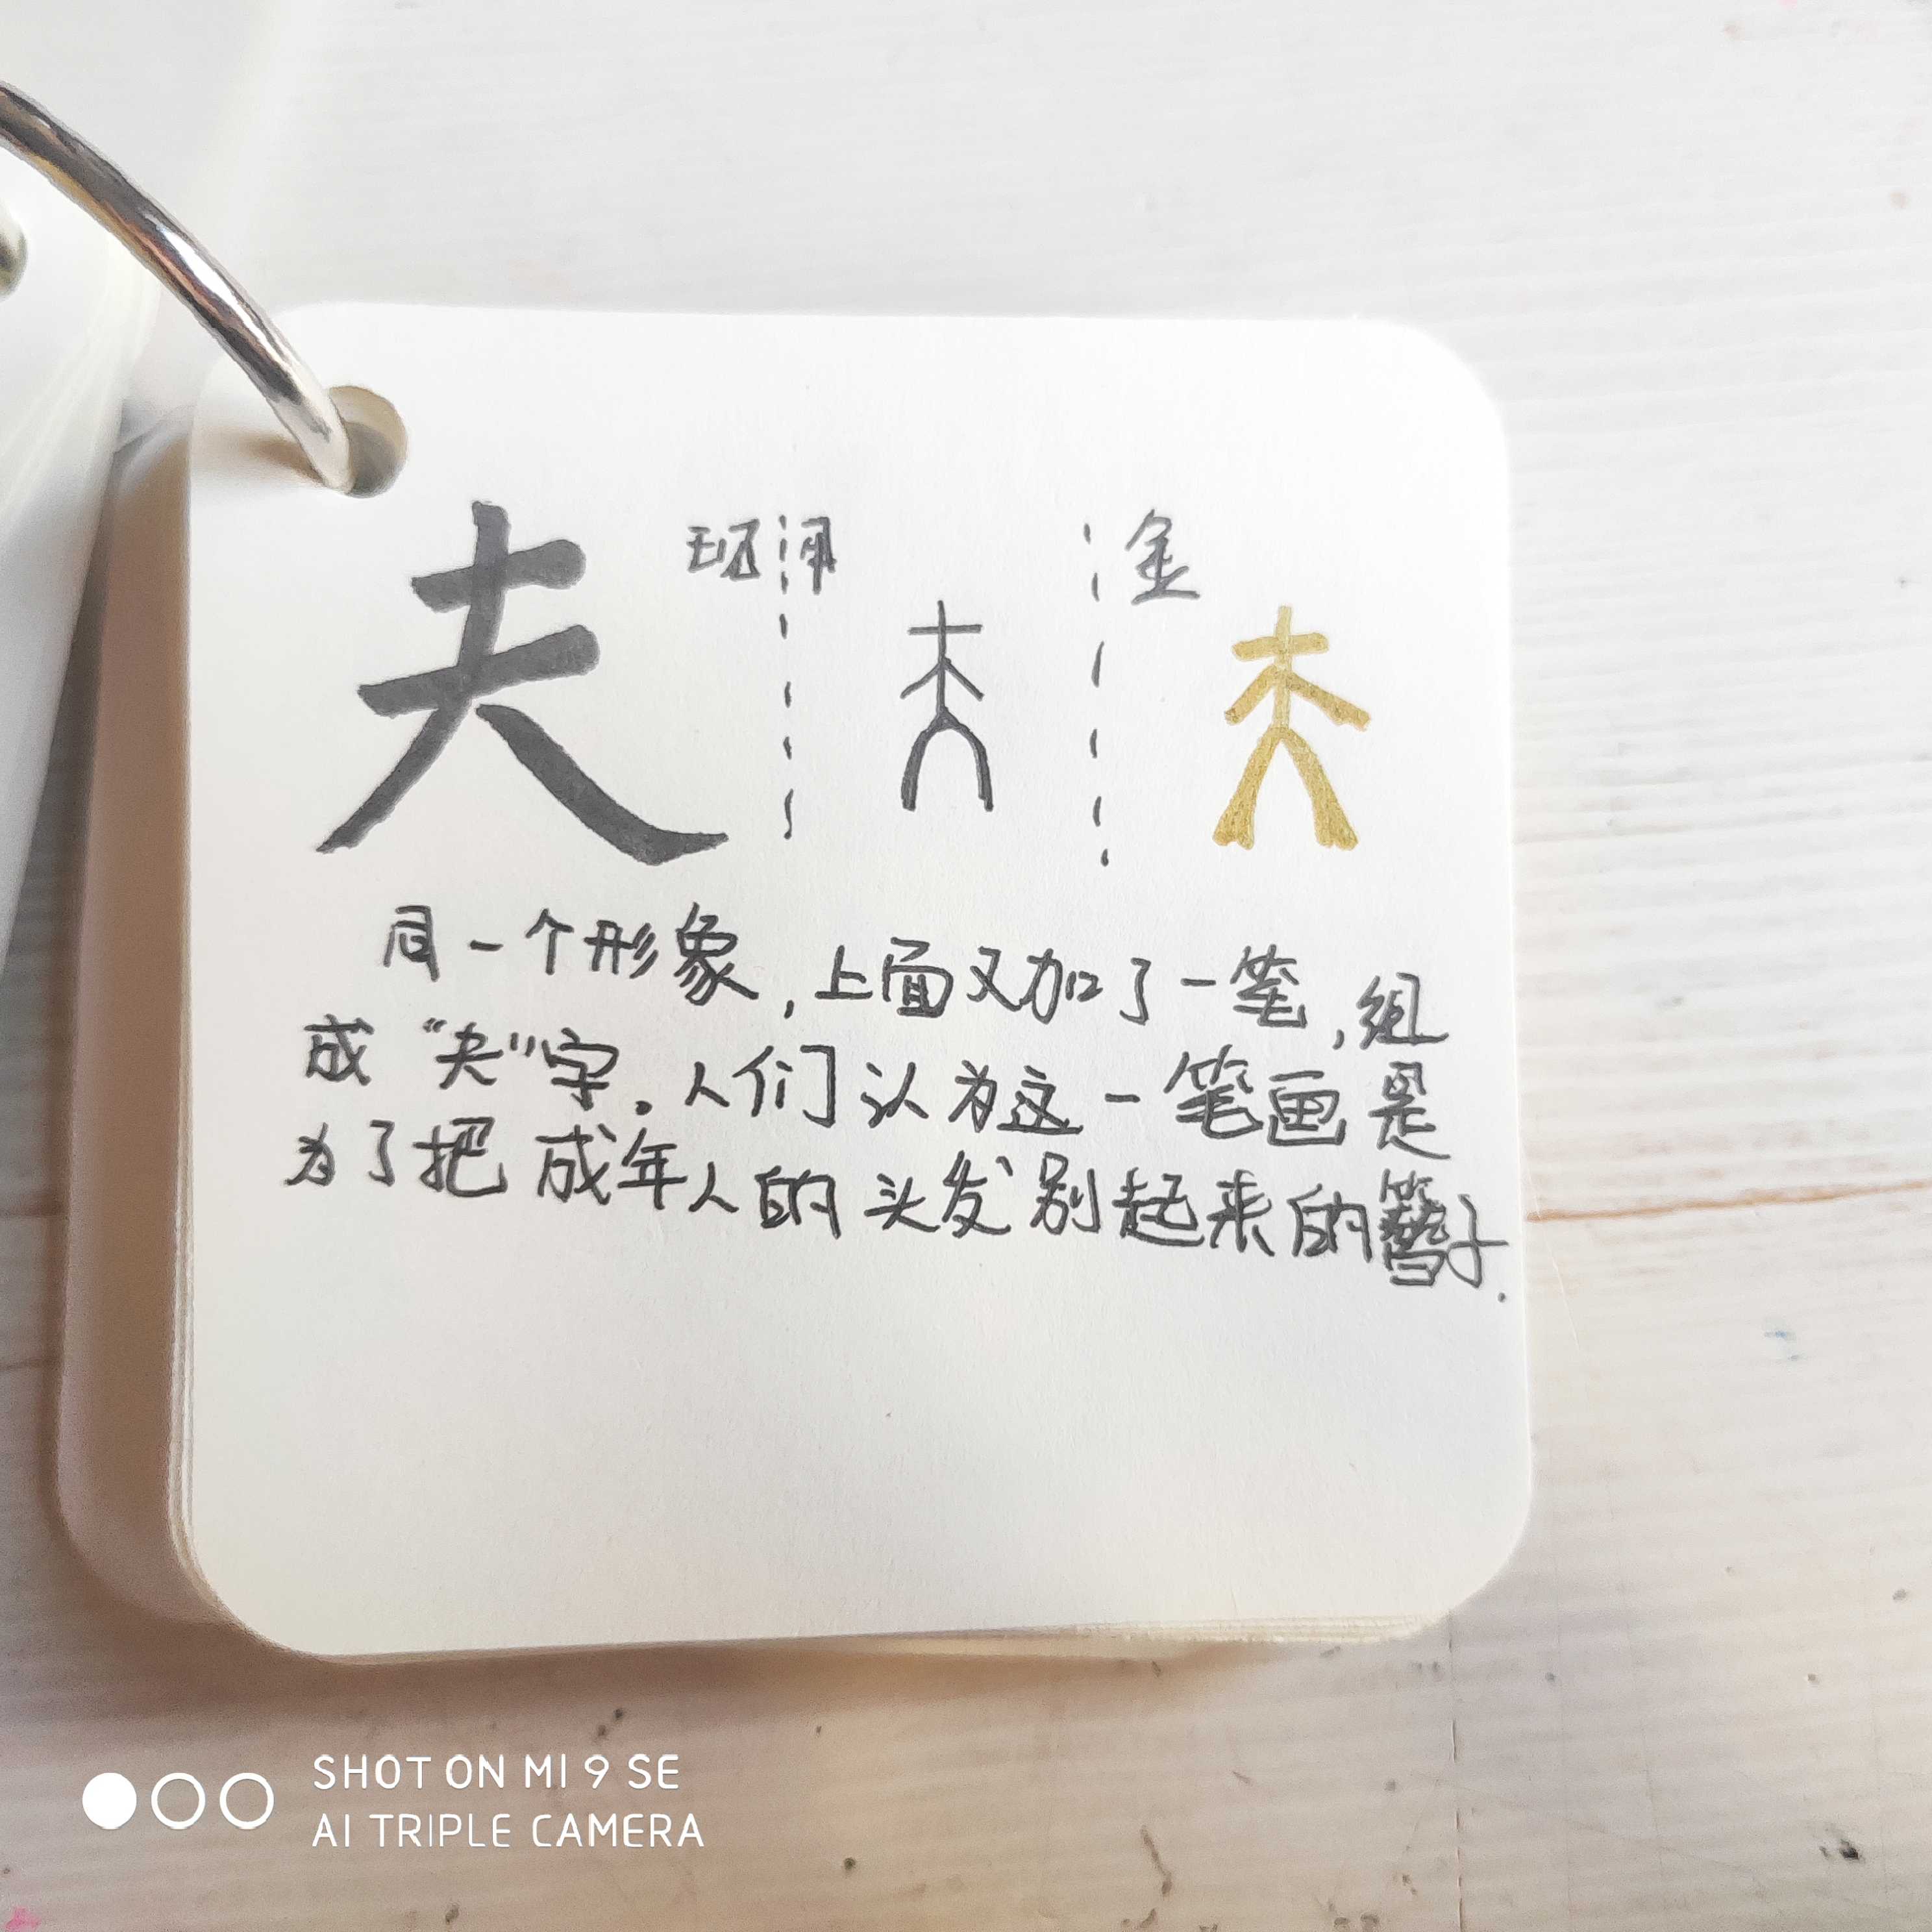 夫 现 甲 金
同一个形象，上面又加了一笔，组
成“夫”字．人们认为这一笔画是
为了把成年人的头发别起来的簪子．
SHOT ON MI 9 SE
AI TRIPLE CAMERA